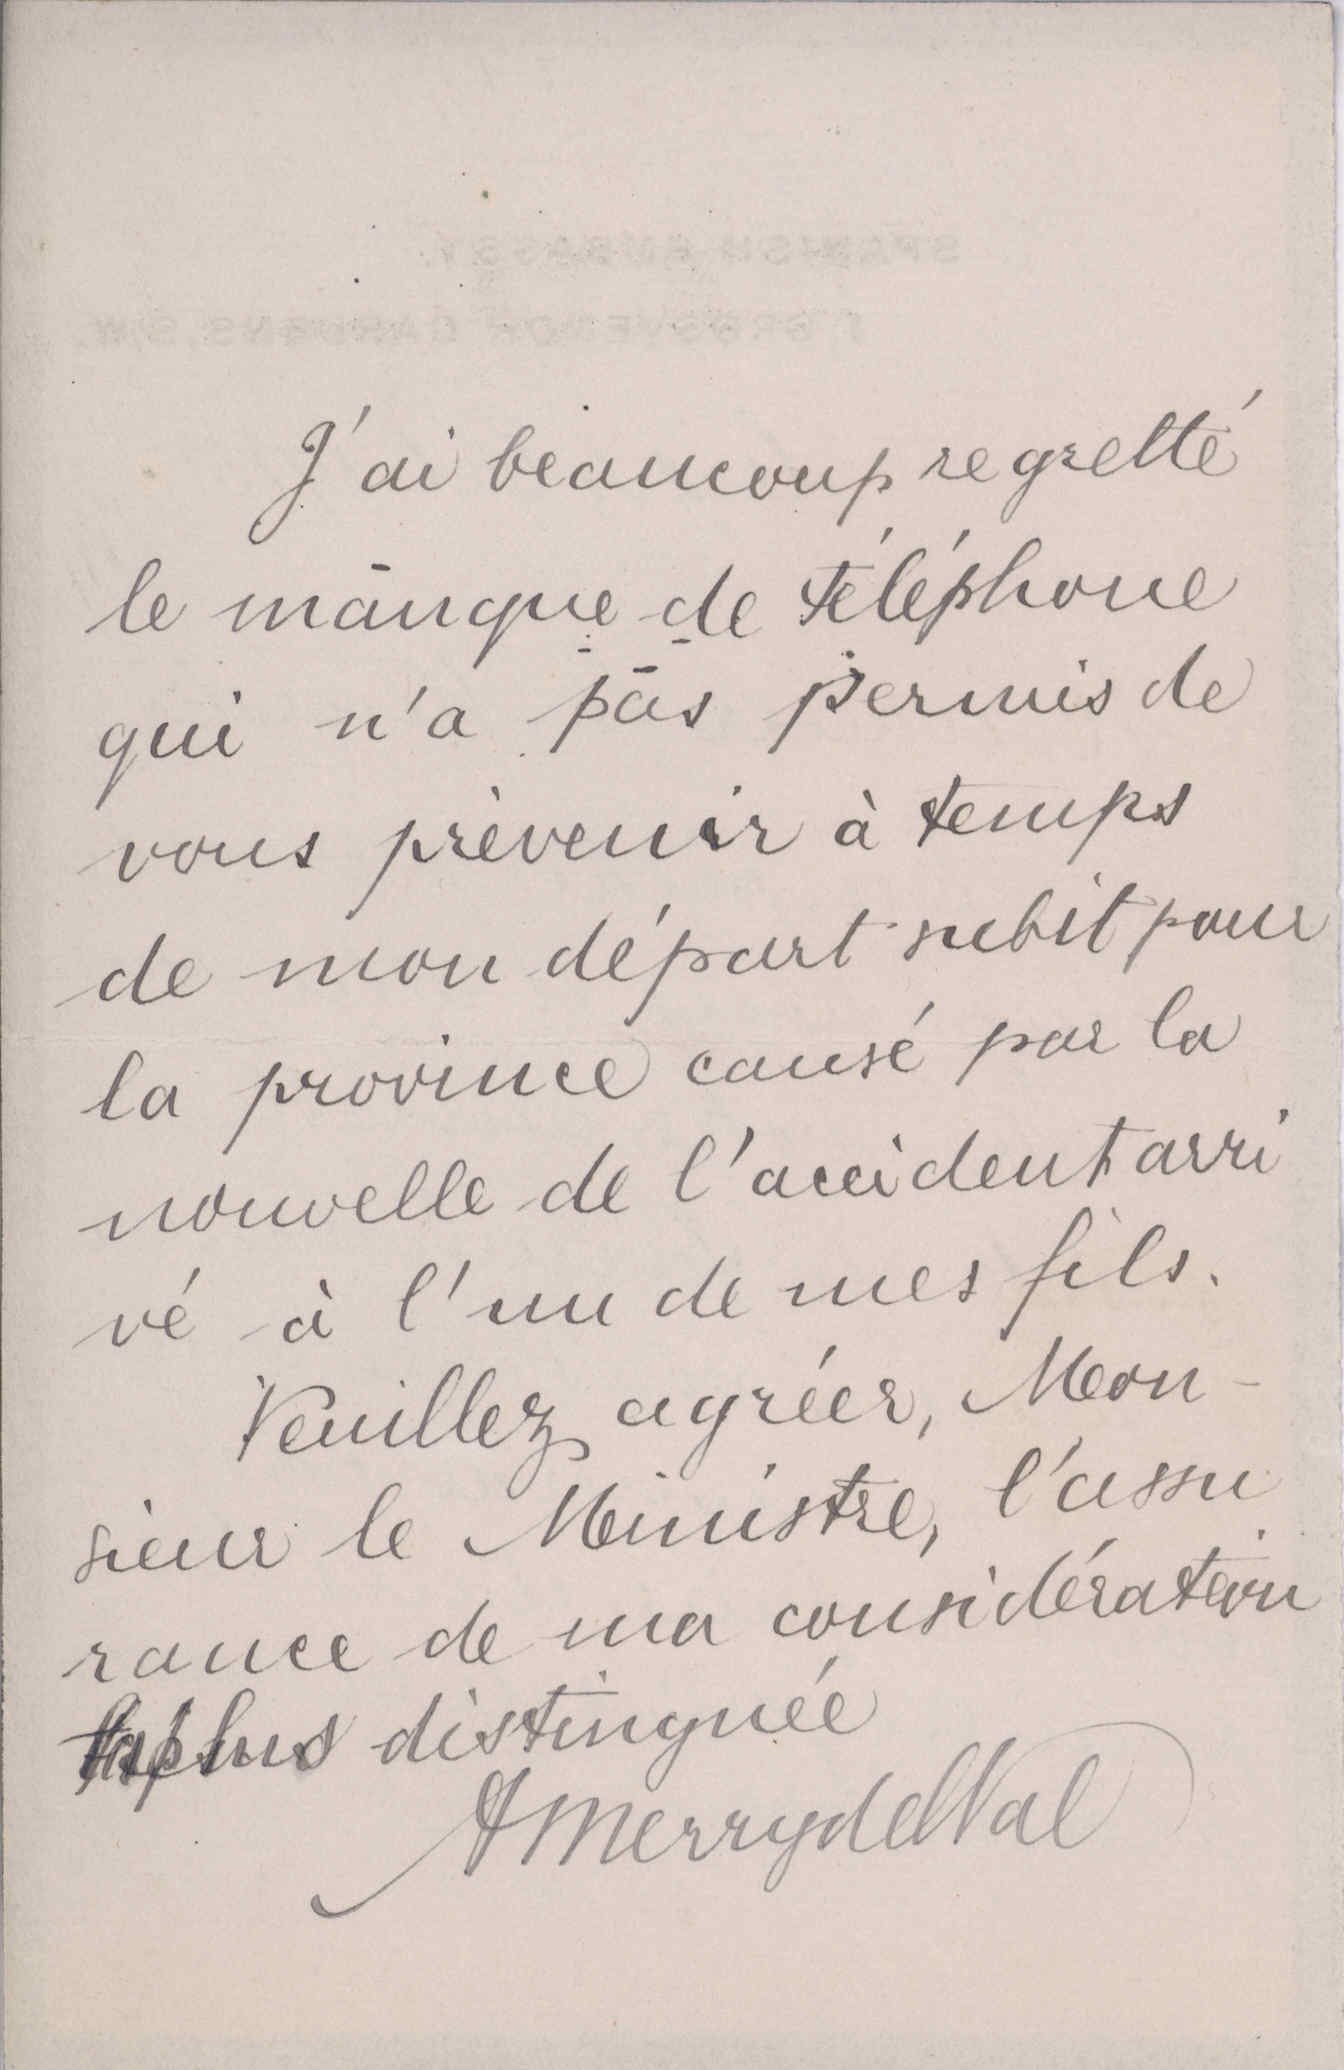 SPANISH EMBASSY.
1 GROSVENOR GARDENS, S.W.
J'ai beaucoup regretté
le manque de téléphone
qui n'a pas permis de
vous prèvenir à temps
de mon départ subit pour
la province causé par la
nouvelle de l'accident arri
vé à l'un de mes fils.
Veuillez agréer, Mon-
sieur le Ministre, l'assu
rance de ma considération
la plus distinguée
A Merry del Val